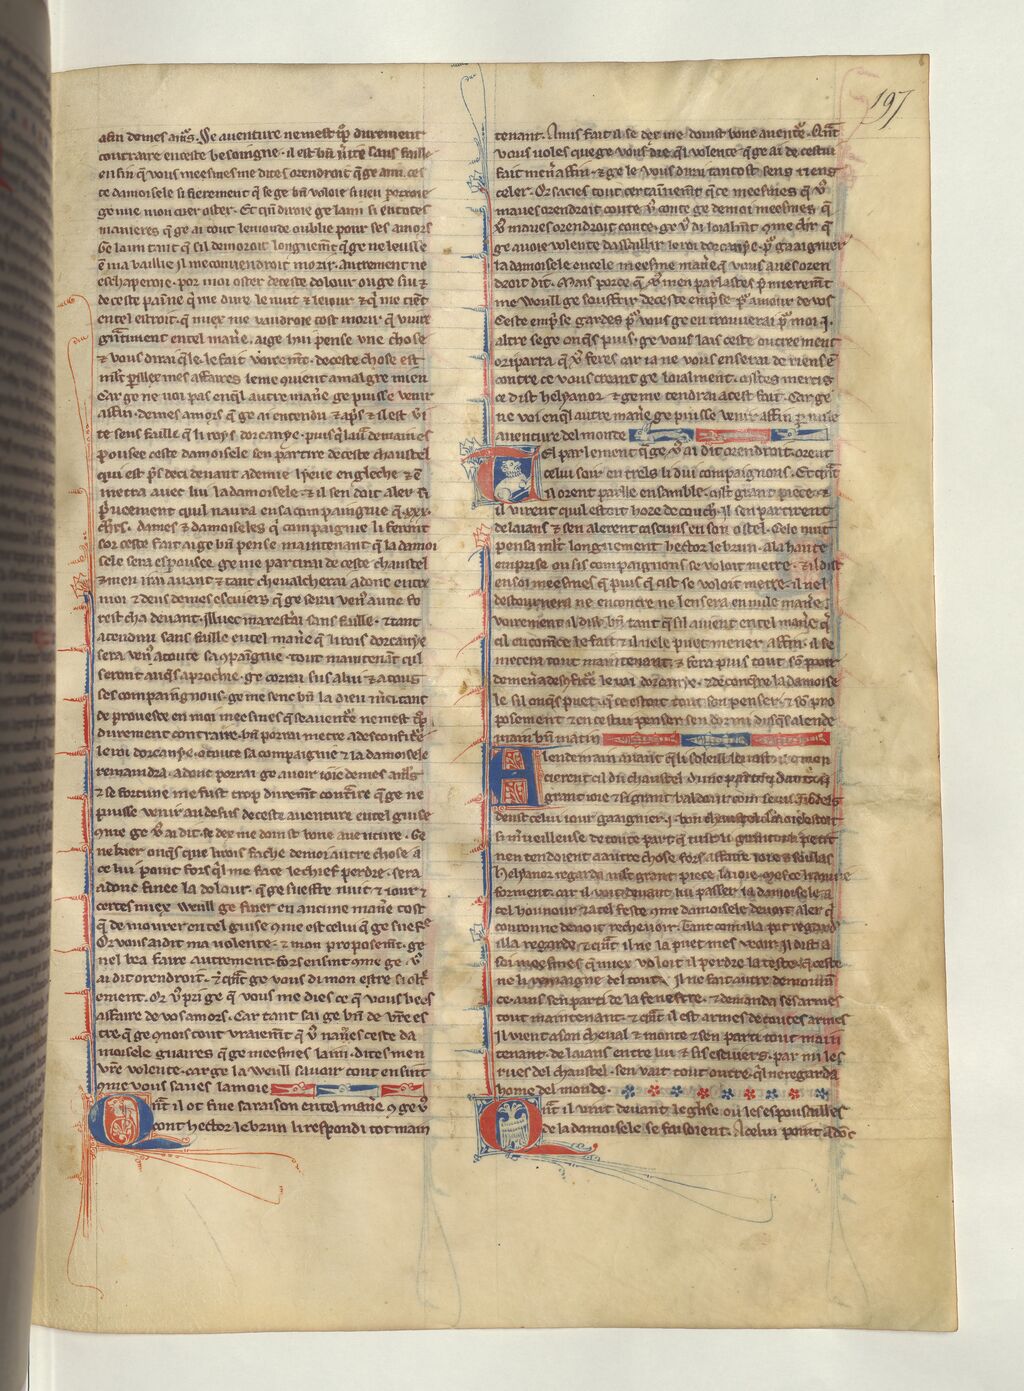 197
afin de mes am̃s. Se aventure ne mest tp̃ durement
contraire en ceste besoingne. il est bñ ṽite sans faille
en fin q̃ vous meesmes me dites orendroit q̃ ge aim ces
te damoisele si fierement q̃ se ge bñ voloie si nen porroie
ge mie mon cuer oster. Et qñ diroie ge laim si en totes
manieres q̃ ge ai tout le monde oublie pour ses amors
Ge laim tant q̃ sil demoroit longuem̃t q̃ ge ne leusse
ẽ ma baillie il me convendroit morir. autrement ne
eschaperoie. por moi oster de ceste dolour ou ge sui ⁊
de ceste paine q̃ me dure le nuit ⁊ le jour ⁊ q̃ me tiẽt
en tel estroit. q̃ miex me vaudroie tost morir q̃ vivre
en tel mañe. aige hui pense une chose
⁊ vous dirai q̃le. le fait voirem̃t. de ceste chose est
ml̃t perilleus mes affaires le me quient a malgre mien
Car ge ne voi pas en q̃l autre mañe ge puisse venir
affin. de mes amors q̃ ge ai entendu ⁊ ap̃s ⁊ il est ṽi
te sens faille q̃ li roys dorcanye. puis q̃l aura demain es
pousee ceste damoisele sen partira de ceste chastel
qui est p̃s deci devant a demie lyeue engleche ⁊ ẽ
metra avec lui la damoisele. ⁊ il sen doit aler si
p̃iveement quil naura en sa compaingnie q̃ .xxx.
ch̃rs. dames ⁊ damoiseles q̃ compaignie li feront
sor ceste fait aige bñ pense maintenant q̃ la damoi
sele sera espousee. ge me partirai de ceste chastel
⁊ men irai avant ⁊ tant chevalcherai adont entre
moi ⁊ deus de mes escuiers q̃ ge serai veñ a une fo
rest cha devant. Illuec marestai sans faille. ⁊ tant
atendrai sans faille en tel mañe q̃ li rois dorcanye
sera veñ a toute sa compaignie. tout maintenãt cuil
seront auq̃s aprochie. ge corrai sus a lui ⁊ a tous
ses compaingnons. ge me senc bñ la dieu m̃ci tant
de proueste en moi meesmes q̃ se aventure ne mest tp̃
durement contraire. bñ porrai metre a desconfit̃e
le roi dorcanye. o toute sa compaignie ⁊ la damoisele
remandra. adonc porrai ge avoir joie de mes am̃s
⁊ se fortune me fust trop durem̃t cont̃ire q̃ ge ne
puisse venir au desus de ceste aventure en tel guise
9me ge ṽ ai dit. se dex me doinst bone aventure. Ge
ne kier onq̃s que li rois fache de moi autre chose a
ce lui point fors q̃l me face le chief perdre. sera
adonc finee la dolour. q̃ ge sueffre nuit ⁊ jour ⁊
certes miex weull ge finer en aucune mañe tost
q̃ de mourer en tel guise 9me est celui q̃ ge suefrẽ
Or vous ai dit ma volente. ⁊ mon proposem̃t. ge
nel bea faire autrement. fors ensint 9me ge ṽ
ai dit orendroit. ⁊ q̃nt ge vous di mon estre si
ement. Or ṽ pri ge q̃ vous me dies ce q̃ vous bees
affaire de vos amors. Car tant sai ge bñ de vr̃e es
tre q̃ ge 9nois tout vraiem̃t q̃ ṽ nam̃es ceste da
moisele guaires q̃ ge meesmes laim. dites men
vr̃e volente. car ge la weull savoir tout ensint
9me vous saves la moie
Qãt il ot fine sa raison en tel mañe. 9 ge ṽ
cont hector le brun li respondi tot main
tenant. Amis fait il se dex me doinst bone avent̃e. Q̃nt
vous voles que ge vous die. q̃l volente q̃ ge ai de cestui
fait mener affin. ⁊ ge le vous dirai tantost sens riens
celer. Or sacies tout certainem̃t q̃ ce meesmes q̃ ṽ
maves orendroit conte ṽ conte ge de moi meesmes q̃
ṽ maves orendroit conte. ge ṽ di loialm̃t 9me ch̃r q̃
ge avoie volente dassallir le roi dorcanye. p̃ gaaignier
la damoisele en cele meesme mañe q̃ vous aves oren
droit dit. Mais porce q̃ ṽ men parlastes p̃mierem̃t
me weull ge souffrir de ceste emp̃se p̃ amour de vos
Ceste emp̃se gardes p̃ vous ge en trouverai p̃ moi .i.
altre se ge onq̃s puis. ge vous lais ceste outreement
or i parra q̃ ṽ feres car ia ne vous en serai de riens ẽ
contre ce vous creant ge loialment. Cistes mercis
ce dist helyanor ⁊ ge me tendrai a cest fait. Car ge
ne voi en q̃l autre mañe ge puisse venir affin p nule
aventure del monde
Cel parlement q̃ ge ṽ ai dit orendroit. orent
celui soir entrels li dui compaignons. Et q̃nt
il orent parlle ensamble. ml̃t grant piece. ⁊
il virent quil estoit hore de couch̃. Il sen partirent
de laians ⁊ sen alerent cascuns en son ostel. Cele nuit
pensa ml̃t longuement hector le brun. a la haute
emprise ou sis compaignons se voloit metre. ⁊ il dist
en soi meesmes q̃ puis q̃ cist se voloit metre. il nel
destournera ne encontre ne len sera en nule mañe.
voirement il dist bñ tant q̃ sil avient en tel mañe q̃
cil encom̃ce le fait ⁊ il ne le puet mener affin. il se
metera tout maintenant. ⁊ fera puis tout son poor
de mener a desc̃fit̃e le roi dorcanye. ⁊ de conq̃re la damoise
le sil onq̃s puet. q̃ ce estoit tout son penser. ⁊ sõ pro
posement ⁊ en cestui penser sen dormi disq̃s a lende
main bñ matin
A lendemain avant q̃ li soleil
cierent cil du chastel
grant joie ⁊ si grant baldoir com se
deust celui jour gaaignier .i. bon chastel
si m̃veilleuse de toute part q̃ tuit li grant ⁊ li petit
nen tendoient a autre chose fors affaire joie ⁊ soullas
helyanor regarda ml̃t grant piece la joie. mes ce li anuie
forment. car il voit devant lui passer la damoisele a
tel honnour ⁊ a tel feste 9me damoisele devoit aler q̃
couronne devoit rechevoir. Tant com il la pot regard̃
il la regarde. ⁊ q̃nt il ne la puet mes veoir. Il dist a
soi meesmes q̃ miex voloit il perdre la teste. q̃ ceste
ne li remaigne del tout. Il ne fait autre demoran
ce. ains sen parti de la fenestre. ⁊ demanda ses armes
tout maintenant. ⁊ q̃nt il est armes de toutes armes
Il vient a son cheval ⁊ monte ⁊ sen parti tout main
tenant. de laians entre lui ⁊ sis escuiers. par mi les
rues del chastel. sen vait tout outre. q̃l ne regarda
home del monde.
Qãt il vint devant leglise ou les espousailles
de la damoisele se faisoient. A celui point adõc